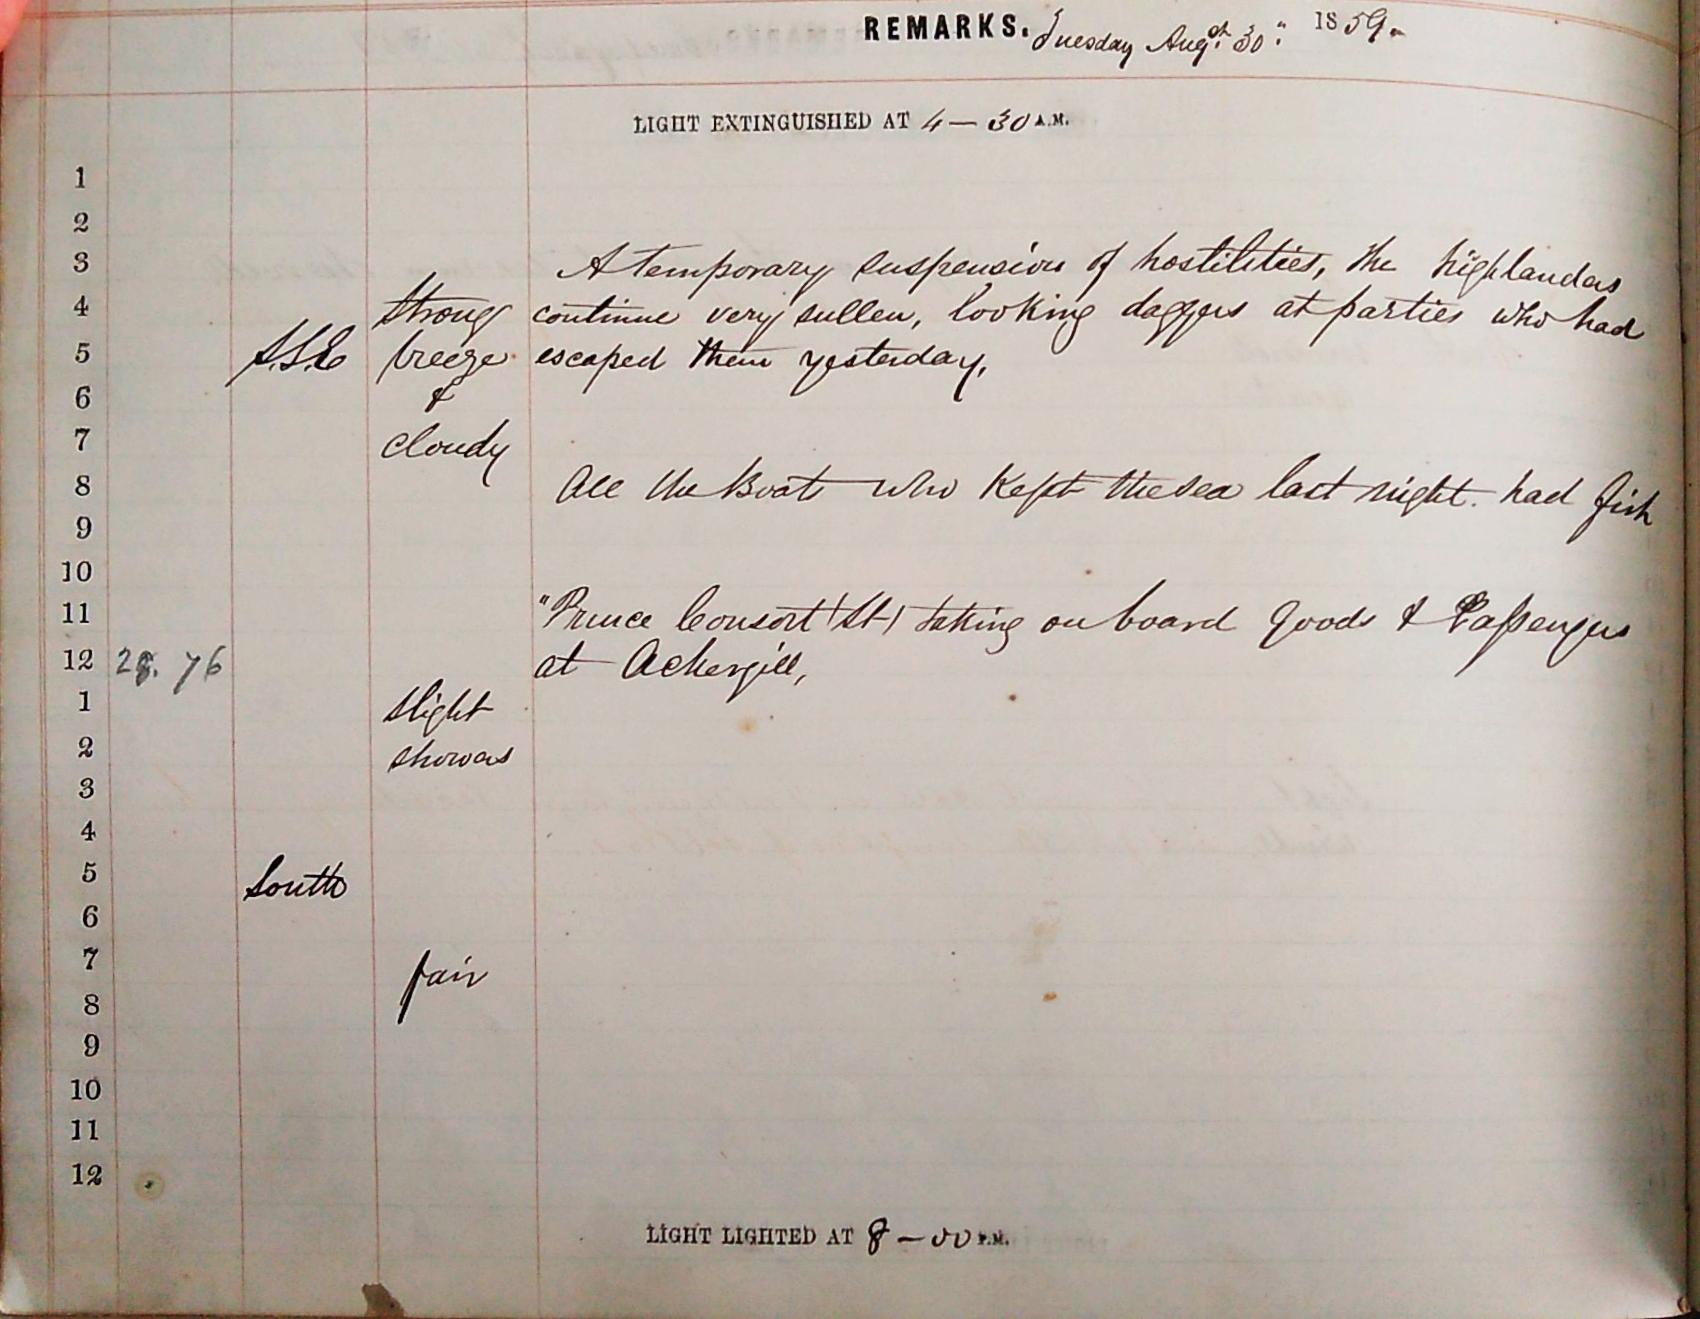 REMARKS. Tuesday Augst. 30" 1859.
LIGHT EXTINGUISHED AT 4 — 30 A.M.
1
2
3 A temporary suspension of hostilities, the highlanders
4 Strong continue very sullen, looking daggers at parties who had
5 S.S.E breeze escaped them yesterday,
6 &
7 cloudy
8 All the Boats who Kept the sea last night. had fish
9
10
11 "Prince Consort (St) taking on board goods & Passengers
12 29. 76 at Ackergill,
1 slight
2 showers
3
4
5 South
6
7 fair
8
9
10
11
12
LIGHT LIGHTED AT 8 — 00 P.M.